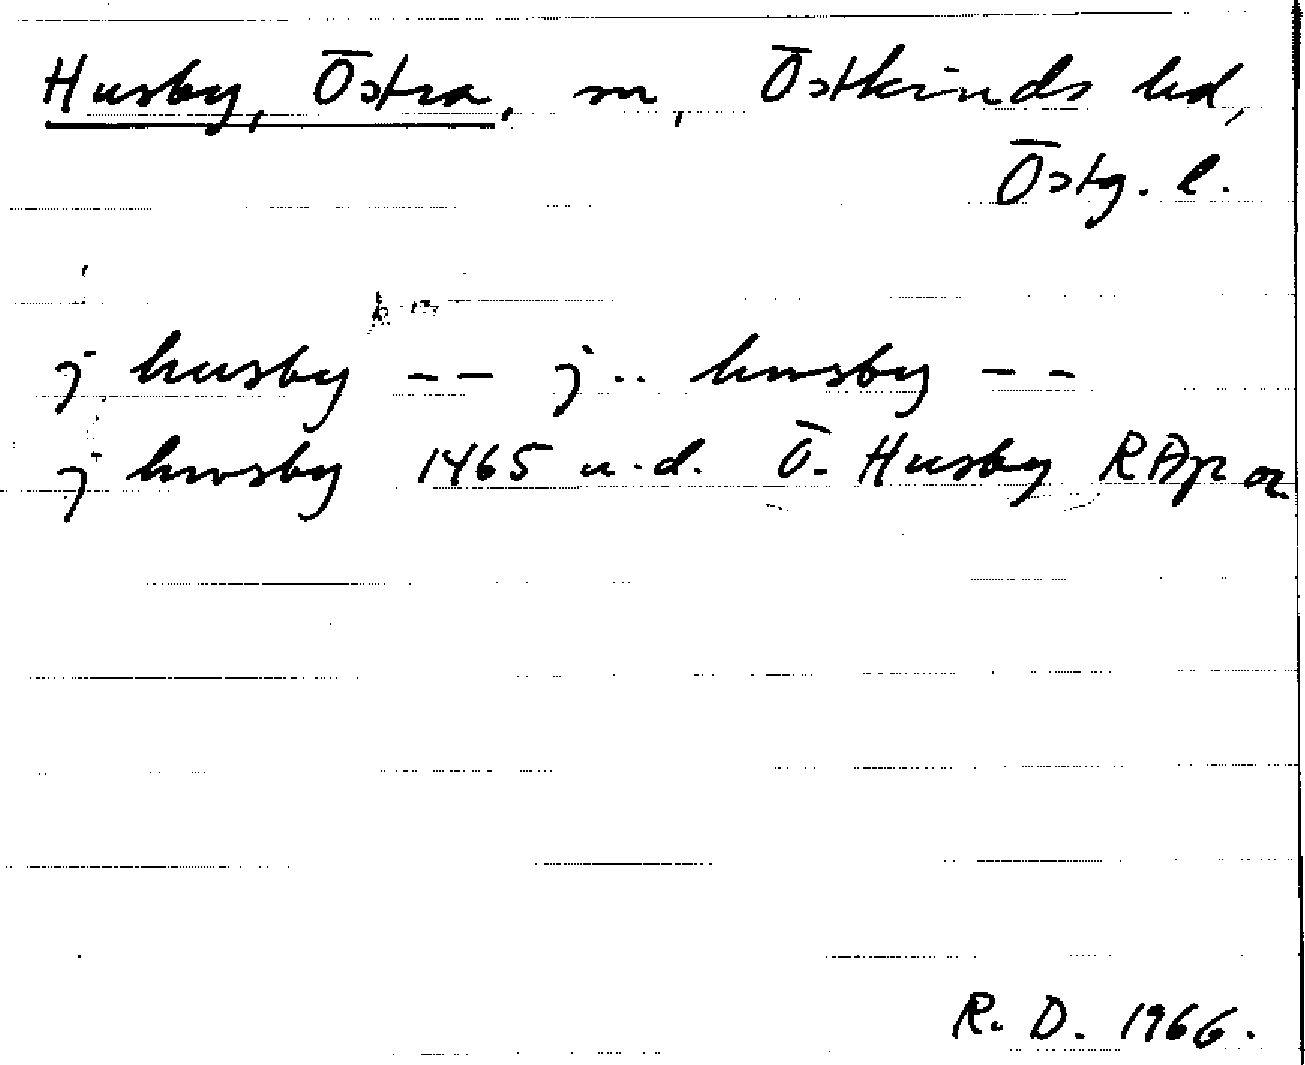 Husby, Östra, sn, Östkinds hd,
Östg. l.
j husby -- j .. hwsby --
j hwsby 1465 u.d. Ö. Husby RApr or
R. D. 1966.